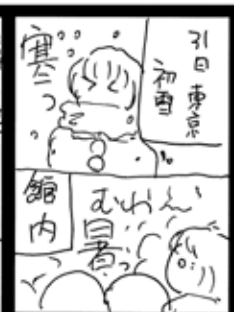 31日 東京
初雪
寒っ
館内
むわぁん
暑っ